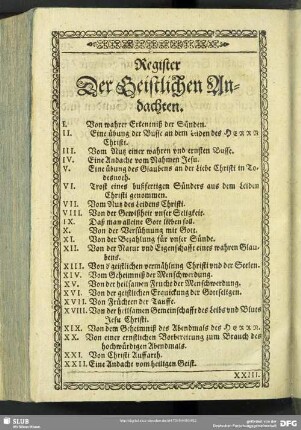 Register
Der Geistlichen An-
dachten.
I. Von wahrer Erkentniß der Sünden.
II. Eine übung der Busse an dem Leiden des HERRN
Christi.
III. Vom Nutz einer wahren und ernsten Busse.
IV. Eine Andacht vom Nahmen Jesu.
V. Eine übung des Glaubens an der Liebe Christi in To-
desnoth.
VI. Trost eines bußfertigen Sünders aus dem Leiden
Christi genommen.
VII. Vom Nutz des Leidens Christi.
VIII. Von der Gewißheit unser Seligkeit.
IX. Daß man alleine Gott lieben soll.
X. Von der Versühnung mit Gott.
XI. Von der Bezahlung für unser Sünde.
XII. Von der Natur und Eigenschafft eines wahren Glau-
bens.
XIII. Von d' geistlichen vermählung Christi und der Seelen.
XIV. Vom Geheimniß der Menschwerdung.
XV. Von der heilsamen Frucht der Menschwerdung.
XVI. Von der geistlichen Erquickung der Gottseligen.
XVII. Von Früchten der Tauffe.
XVIII. Von der heilsamen Gemeinschafft des Leibs und Blutes
Jesu Christi.
XIX. Von dem Geheimniß des Abendmals des HERRN.
XX. Von einer ernstlichen Vorbereitung zum Brauch des
hochwürdigen Abendmals.
XXI. Von Christi Auffarth.
XXII. Eine Andacht vom heiligen Geist.
XXIII.
SLUB
DFG